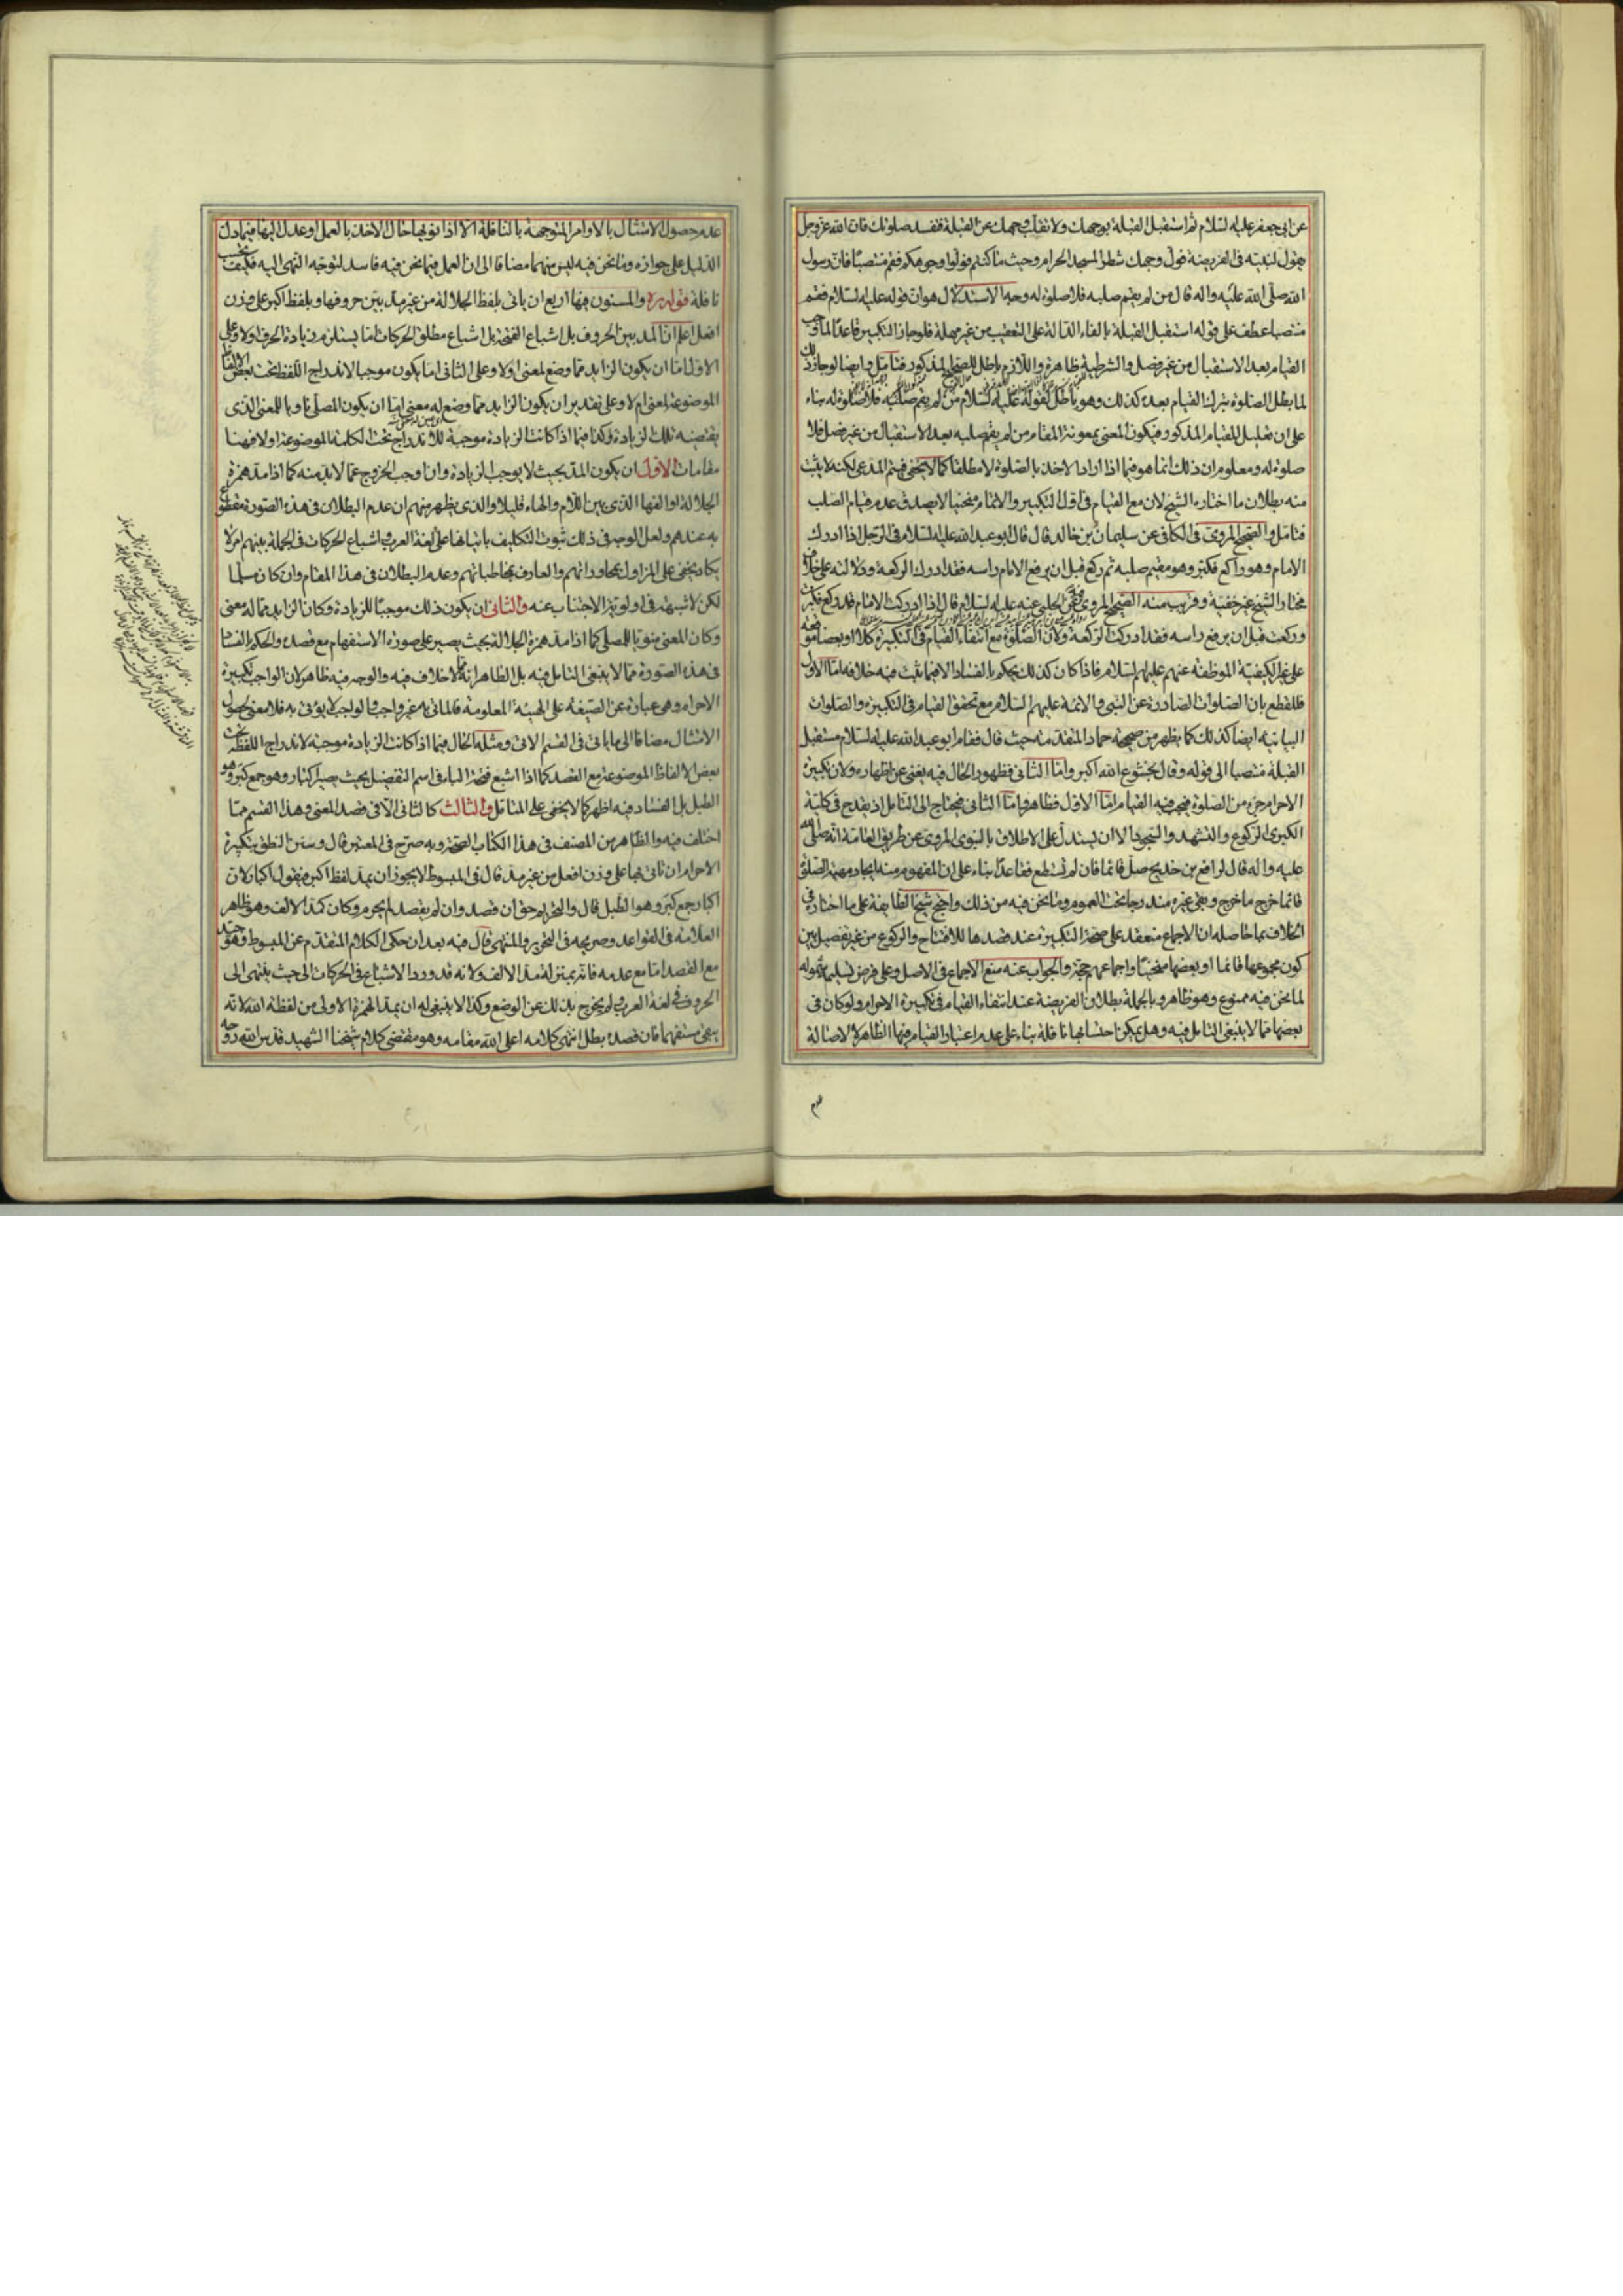 عن ابي جعفر عليه السلام ثم استقبل القبلة بوجهك ولا تقلب وجهك عن القبلة فتفسد صلوتك فان الله عز وجل
يقول لنبيه في الفريضة فول وجهك شطر المسجد الحرام وحيث ما كنتم فولوا وجوهكم فقم منتصبا فان رسول
الله صلى الله عليه واله قال من لم يقم صلبه فلا صلوة له وجه الاستدلال هو ان قوله عليه السلام فقم
منتصبا عطف على قوله استقبل القبلة بالفاء الدالة على التعقيب من غير مهلة فلو جاز التكبير قاعدا لما وجب
القيام بعد الاستقبال من غير فصل والشرطية ظاهرة واللازم باطل للصحيح المذكور فتامل وايضا لو جاز ذلك
لما بطل الصلوة بترك القيام بعده كذلك وهو باطل لقوله عليه السلام من لم يقم صلبه فلا صلوة له بناء
على ان تعليل للقيام المذكور فيكون المعنى بمعونة المقام من لم يقم صلبه بعد الاستقبال من غير فصل فلا
صلوة له ومعلوم ان ذلك انما هو فيما اذا اراد الاخذ بالصلوة لا مطلقا كما لا يخفى فيتم المدعى لكنه لا يثبت
منه بطلان ما اختاره الشيخ لان مع القيام في اول التكبير والاتمام منحنيا لا يصدق عدم قيام الصلب
فتامل والصحيح المروي في الكافي عن سليمان بن خالد قال قال ابو عبد الله عليه السلام في الرجل اذا ادرك
الامام وهو راكع فكبر وهو مقيم صلبه ثم ركع قبل ان يرفع الامام راسه فقد ادرك الركعة ودلالته على خلاف
مختار الشيخ غير خفية وقريب منه الصحيح المروي عن الحلبي عنه عليه السلام قال اذا ادركت الامام قد ركع فكبرت
وركعت قبل ان يرفع راسه فقد ادركت الركعة ولان الصلوة مع انتفاء القيام في التكبيرة كلا او بعضا
على غير الكيفية الموظفة عنهم عليهم السلام فاذا كان كذلك يحكم بالفساد الا فيما يثبت فيه خلافه اما الاول
فللقطع بان الصلوات الصادرة عن النبي والائمة عليهم السلام مع تحقق القيام في التكبيرة والصلوات
البيانية ايضا كذلك كما يظهر من صحيحة حماد المتقدمة حيث قال فقام ابو عبد الله عليه السلام مستقبل
القبلة منتصبا الى قوله وقال بخشوع الله اكبر واما الثاني فظهور الحال فيه يغني عن اظهاره ولان تكبيرة
الاحرام جزء من الصلوة فيجب فيه القيام اما الاول فظاهر واما الثاني فيحتاج الى التامل اذ يقدح في كلية
الكبرى الركوع والتشهد والسجود الا ان يستدل على الاطلاق بالنبوي المروي عن طريق العامة انه صلى الله
عليه واله قال لرافع بن خديج صل قائما فان لم تستطع فقاعدا بناء على ان المفهوم منه ايجاد مهية الصلوة
قائما خرج ما خرج وبقي غيره مندرجا تحت العموم وما نحن فيه من ذلك واحتج شيخ الطايفة على ما اختاره في
الخلاف بما حاصله ان الاجماع منعقد على صحة التكبيرة عند قصدها للافتتاح والركوع من غير تفصيل بين
كون مجموعها قائما او بعضها منحنيا واجماعهم حجة والجواب عنه منع الاجماع في الاصل وعلى فرض تسليم شموله
لما نحن فيه ممنوع وهو ظاهر وبالجملة بطلان الفريضة عند انتفاء القيام في تكبيرة الاحرام ولو كان في
بعضها مما لا ينبغي التامل فيه وهل يمكن احتسابها نافلة بناء على عدم اعتبار القيام فيها الظاهر لا لاصالة
عدم حصول الامتثال بالاوامر المتوجهة بالنافلة الا اذا نويها حال الاخذ بالعمل او عدل اليها فيما دل
الدليل على جوازه وما نحن فيه ليس منهما مضافا الى ان العمل فيما نحن فيه فاسد لتوجه النهي اليه فكيف تحتسب
نافلة قوله ره والمسنون فيها اربع ان ياتي بلفظ الجلالة من غير مد بين حروفها وبلفظ اكبر على وزن
افعل اعلم ان المد بين الحروف بل اشباع الفتحة بل اشباع مطلق الحركات اما يستلزم زيادة الحرف او لا وعلى
الاول اما ان يكون الزايد مما وضع لمعنى او لا وعلى الثاني اما يكون موجبا لاندراج اللفظ تحت بعض الالفاظ
الموضوعة لمعنى ام لا وعلى تقدير ان يكون الزايد مما وضع له معنى اما ان يكون المصلي ناويا للمعنى الذي
يقتضيه تلك الزيادة وكذا فيما اذا كانت الزيادة موجبة للاندراج تحت الكلمة الموضوعة او لا فهنا
مقامات الاول ان يكون المد بحيث لا يوجب الزيادة وان اوجب الخروج عما لا بد منه كما اذا مد همزة
الجلالة او الفها الذي بين اللام والهاء قليلا والذي يظهر منهم ان عدم البطلان في هذه الصورة مقطوع
به عندهم ولعل الوجه في ذلك ثبوت التكليف باتيانها على لغة العرب واشباع الحركات في الجملة بينهم امر لا
يكاد يخفى على المزاول بمحاوراتهم والعارف بمخاطباتهم وعدم البطلان في هذا المقام وان كان مسلما
لكن لا شبهة في اولوية الاجتناب عنه والثاني ان يكون ذلك موجبا للزيادة وكان الزايد مما له معنى
وكان المعنى منويا للمصلي كما اذا مد همزة الجلالة بحيث يصير على صورة الاستفهام مع قصده والحكم بالفساد
في هذه الصورة مما لا ينبغي التامل فيه بل الظاهر انه مما لا خلاف فيه والوجه فيه ظاهر لان الواجب تكبيرة
الاحرام وهي عبارة عن الصيغة على الهيئة المعلومة فالماتي به غير واجب والواجب لا يؤتى به فلا معنى لحصول
الامتثال مضافا الى ما ياتي في القسم الاتي ومثله الحال فيما اذا كانت الزيادة موجبة لاندراج اللفظ تحت
بعض الالفاظ الموضوعة مع القصد كما اذا اشبع فتحة الباء في اسم التفضيل بحيث يصير اكبار وهو جمع كبر وهو
الطبل بل الفساد فيه اظهر كما لا يخفى على المتامل والثالث كالثاني الا في قصد المعنى وهذا القسم مما
اختلف فيه والظاهر من المصنف في هذا الكتاب الصحة وبه صرح في المعتبر قال وسنن النطق بتكبيرة
الاحرام ان تاتي بها على وزن افعل من غير مد قال في المبسوط لا يجوز ان يمد لفظ اكبر فيقول اكبار لان
اكبار جمع كبر وهو الطبل قال والتحريم حق ان قصد وان لم يقصد لم يحرم وكان كمد الالف وهو ظاهر
العلامة في القواعد وصريحه في التحرير والمنتهى قال فيه بعد ان حكى الكلام المتقدم عن المبسوط وهو جيد
مع القصد اما مع عدمه فانه بمنزلة مد الالف ولانه قد ورد الاشباع في الحركات الى حيث ينتهى الى
الحروف في لغة العرب ولم يخرج بذلك عن الوضع وكذا لا ينبغي له ان يمد الهمزة الاولى من لفظة الله لانه
يبقى مستفهما فان قصده بطل انتهى كلامه اعلى الله مقامه وهو مقتضى كلام شيخنا الشهيد قدس الله روحه